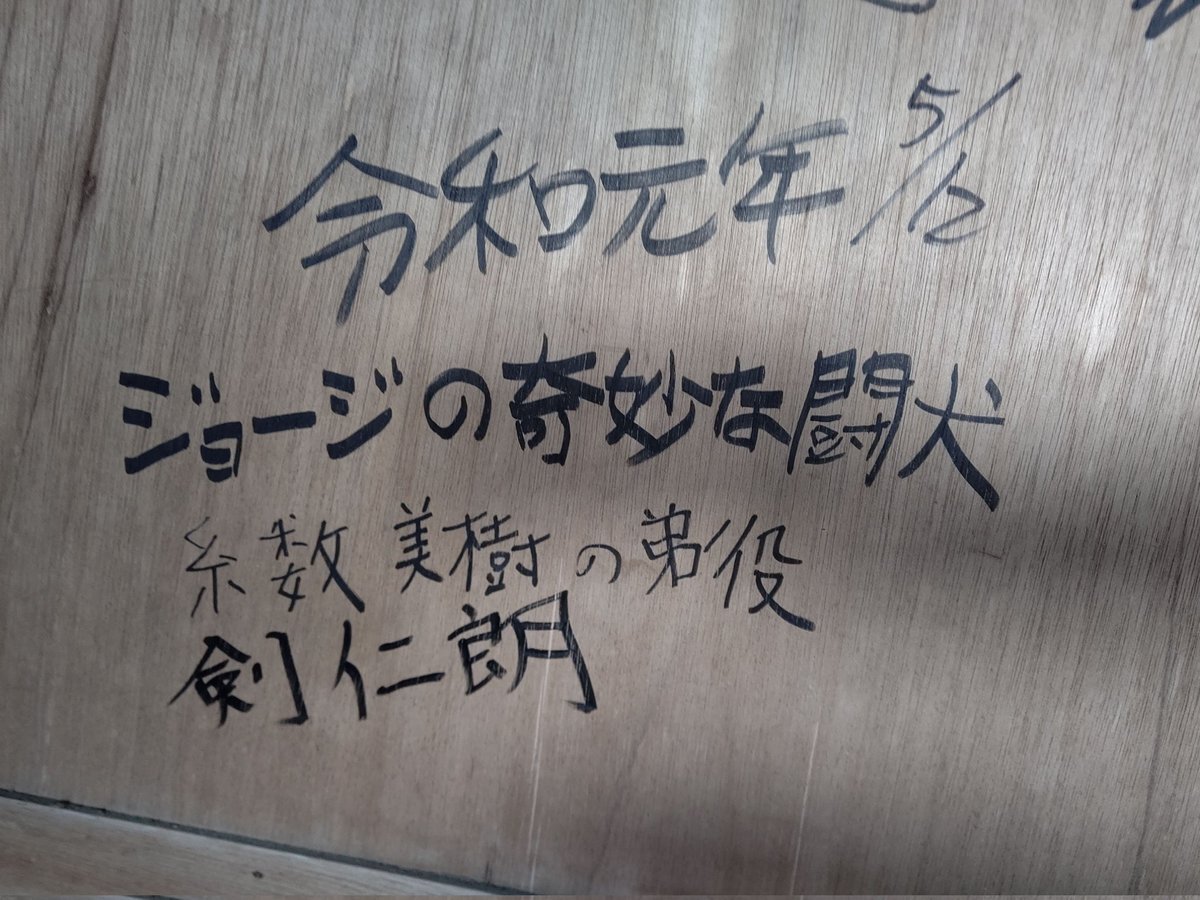 令和元年 5/12
ジョージの奇妙な闘犬
糸数美樹の弟役
剣仁朗